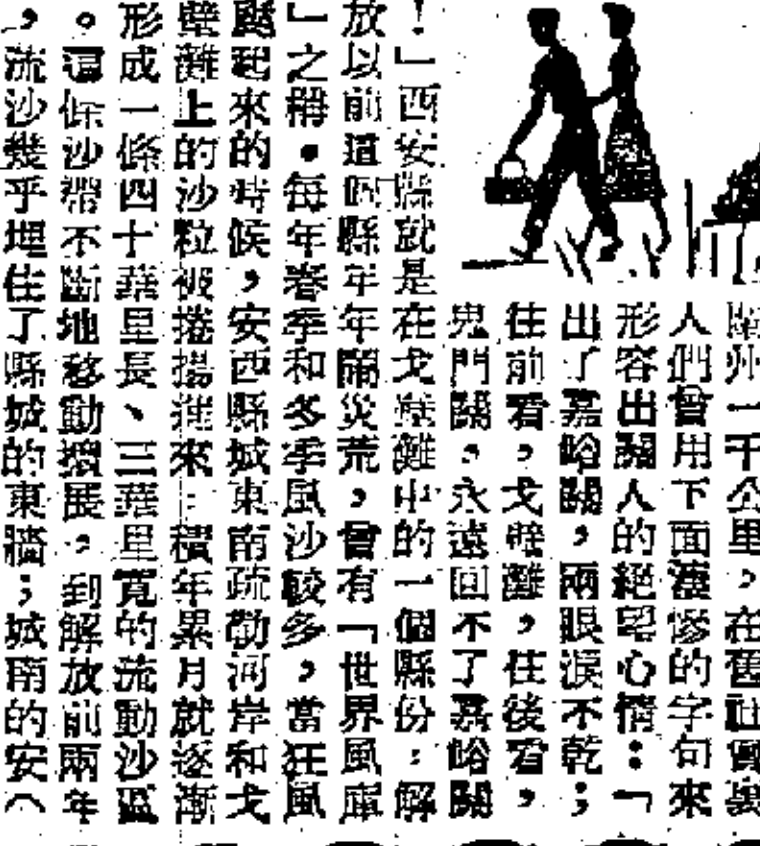 州一千公里,在舊社會裏
人們曾用下面淒慘的字句來
形容出關人的絕望心情:「
出了嘉峪關,兩眼淚不乾;
往前看,戈壁灘,往後看,
鬼門關,永遠回不了嘉峪關
!」西安縣就是在戈壁灘中的一個縣份:解
放以前這個縣年年鬧災荒,曾有「世界風庫
」之稱。每年春季和冬季風沙較多,當狂風
起來的時候,安西縣城東南疏勒河岸和戈
壁灘上的沙粒被捲揚進來:積年累月就逐漸
形成一條四十華里長、三華里寬的流動沙區
。這條沙帶不斷地移動擴展,到解放前兩年
,流沙幾乎埋住了縣城的東牆;城南的安(